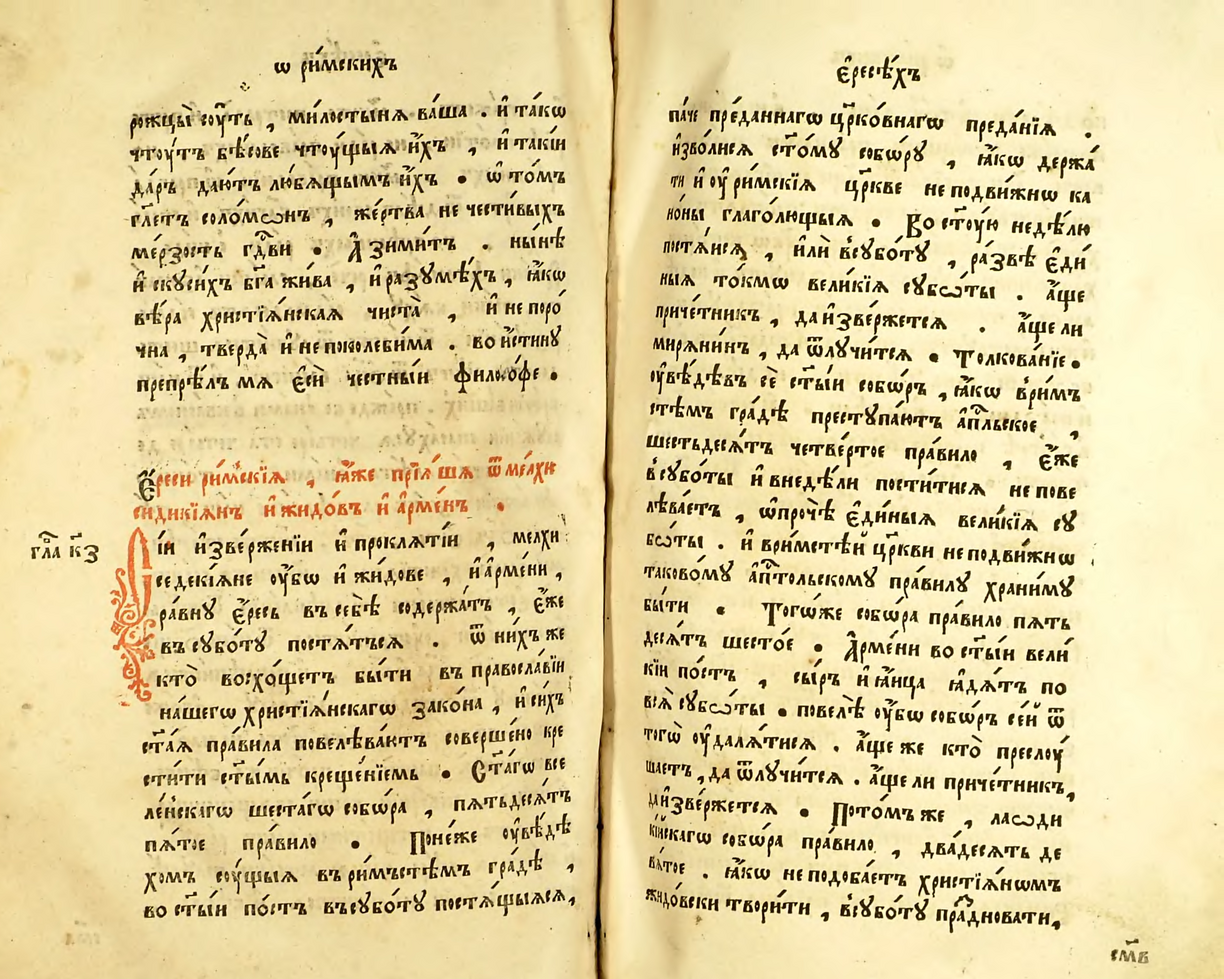 ѡ ри́мскихъ
рожцы̀ сꙋ́ть , ми́лостынѧ ва́ша . и҆ та́кѡ
чтꙋ́тъ бѣ́сове чтꙋ́щыѧ и҆́хъ , и҆ такі́и
да́ръ даю́тъ лю́бѧщымъ и҆́хъ . ѡ҆ то́мъ
гл҃етъ соло́мѡнъ , же́ртва не честивыхъ
ме́рзость гд҇ви . А҆зими́тъ . ны́нѣ
и҆скꙋси́хъ бг҃а жи́ва , и҆ разꙋмѣ́хъ , ꙗ҆́кѡ
вѣ́ра христїѧ́нскаѧ чиста̀ , и҆ не поро́
чна , тверда̀ и҆ не поколеби́ма . во и҆́стинꙋ
препрѣ́лъ мѧ є҆сѝ че́стныи фило́софе .
Є҆́реси ри́мскїѧ , ꙗ҆́же прїѧ́шѧ ѿ мелхи
сидикїѧ́нъ и҆ жидо́въ и҆ а҆рме́нъ .
гл҃а к҃з
Сі́и и҆зверже́нїи и҆ проклѧ́тїи , мелхи
седекїѧ́не ᲂу҆́бѡ и҆ жи́дове , и҆ а҆рме́ни ,
ра́внꙋ є҆́ресь въ себѣ̀ содержа́тъ , є҆́же
въ сꙋбо́тꙋ постѧ́тьсѧ . ѿ ни́хъ же
кто̀ восхо́щетъ бы́ти въ правосла́вїи
на́шегѡ христїѧ́нскагѡ зако́на , и҆ си́хъ
ст҃а́ѧ пра́вила повелѣва́ютъ соверше́но кре
сти́ти ст҃ы́мь креще́нїемь . Ст҃а́гѡ все
ле́нскагѡ шеста́гѡ собѡ́ра , пѧтьдесѧ́тъ
пѧ́тое пра́вило . Поне́же ᲂу҆вѣ́дѣ
хомъ сꙋ́щыѧ въ ри́мъстѣмъ гра́дѣ ,
во ст҃ы́и по́стъ въ сꙋбо́тꙋ постѧ́щыѧсѧ ,
є҆ресѣ́хъ
па́че пре́даннагѡ цр҃ко́внагѡ преда́нїѧ .
и҆зво́лисѧ ст҃о́мꙋ собѡ́рꙋ , ꙗ҆́кѡ держа́
ти и҆ ᲂу҆ ри́мскїѧ цр҃кве не подви́жнѡ ка
но́ны глаго́лющыѧ . Во ст꙯ꙋ́ю недѣ́лю
постѧ́исѧ , и҆лѝ в̾сꙋбо́тꙋ , ра́звѣ є҆ди́
ныѧ то́кмѡ вели́кїѧ сꙋбѡ́ты . а҆́ще
приче́тникъ , да и҆зве́ржетсѧ . а҆́ще ли
мирѧ́нинъ , да ѿлꙋчи́тсѧ . Толкова́нїе .
ᲂу҆вѣ́дѣвъ сѐ ст҃ы́и собѡ́ръ , ꙗ҆́кѡ в̾ри́мъ
стѣмъ гра́дѣ престꙋпа́ютъ а҆пⷭ҇льское ,
шестьдесѧ́тъ четве́ртое пра́вило , є҆́же
в̾сꙋбо́ты и҆ внедѣ́ли пости́тисѧ не пове
лѣва́етъ , ѡ҆про́чѣ є҆ди́ныѧ вели́кїѧ сꙋ
бѡ́ты . и҆ ври́мстѣи цр҃кви не подви́жнѡ
таково́мꙋ а҆пⷭ҇тольскомꙋ пра́вилꙋ храни́мꙋ
бы́ти . Тогѡ́же собѡ́ра пра́вило пѧть
десѧ́тъ шесто́е . А҆рме́ни во ст҃ы́и вели́
кїи по́стъ , сы́ръ и҆ ꙗ҆́ица ꙗ҆дѧ́тъ по
всѧ̀ сꙋбѡ́ты . повелѣ̀ ᲂу҆́бѡ собѡ́ръ се́й ѿ
тогѡ̀ ᲂу҆далѧ́тисѧ . а҆́ще же кто̀ преслꙋ́
шаетъ , да ѿлꙋчи́тсѧ . а҆́ще ли приче́тникъ ,
да и҆зве́ржетсѧ . Пото́мъ же , лаѡди
кі́йскагѡ собѡ́ра пра́вило , два́десѧть де
вѧ́тое . ꙗ҆́кѡ не подоба́етъ христїѧ́нѡмъ
жидо́вски твори́ти , в̾сꙋбо́тꙋ пра́здновати ,
см҃в